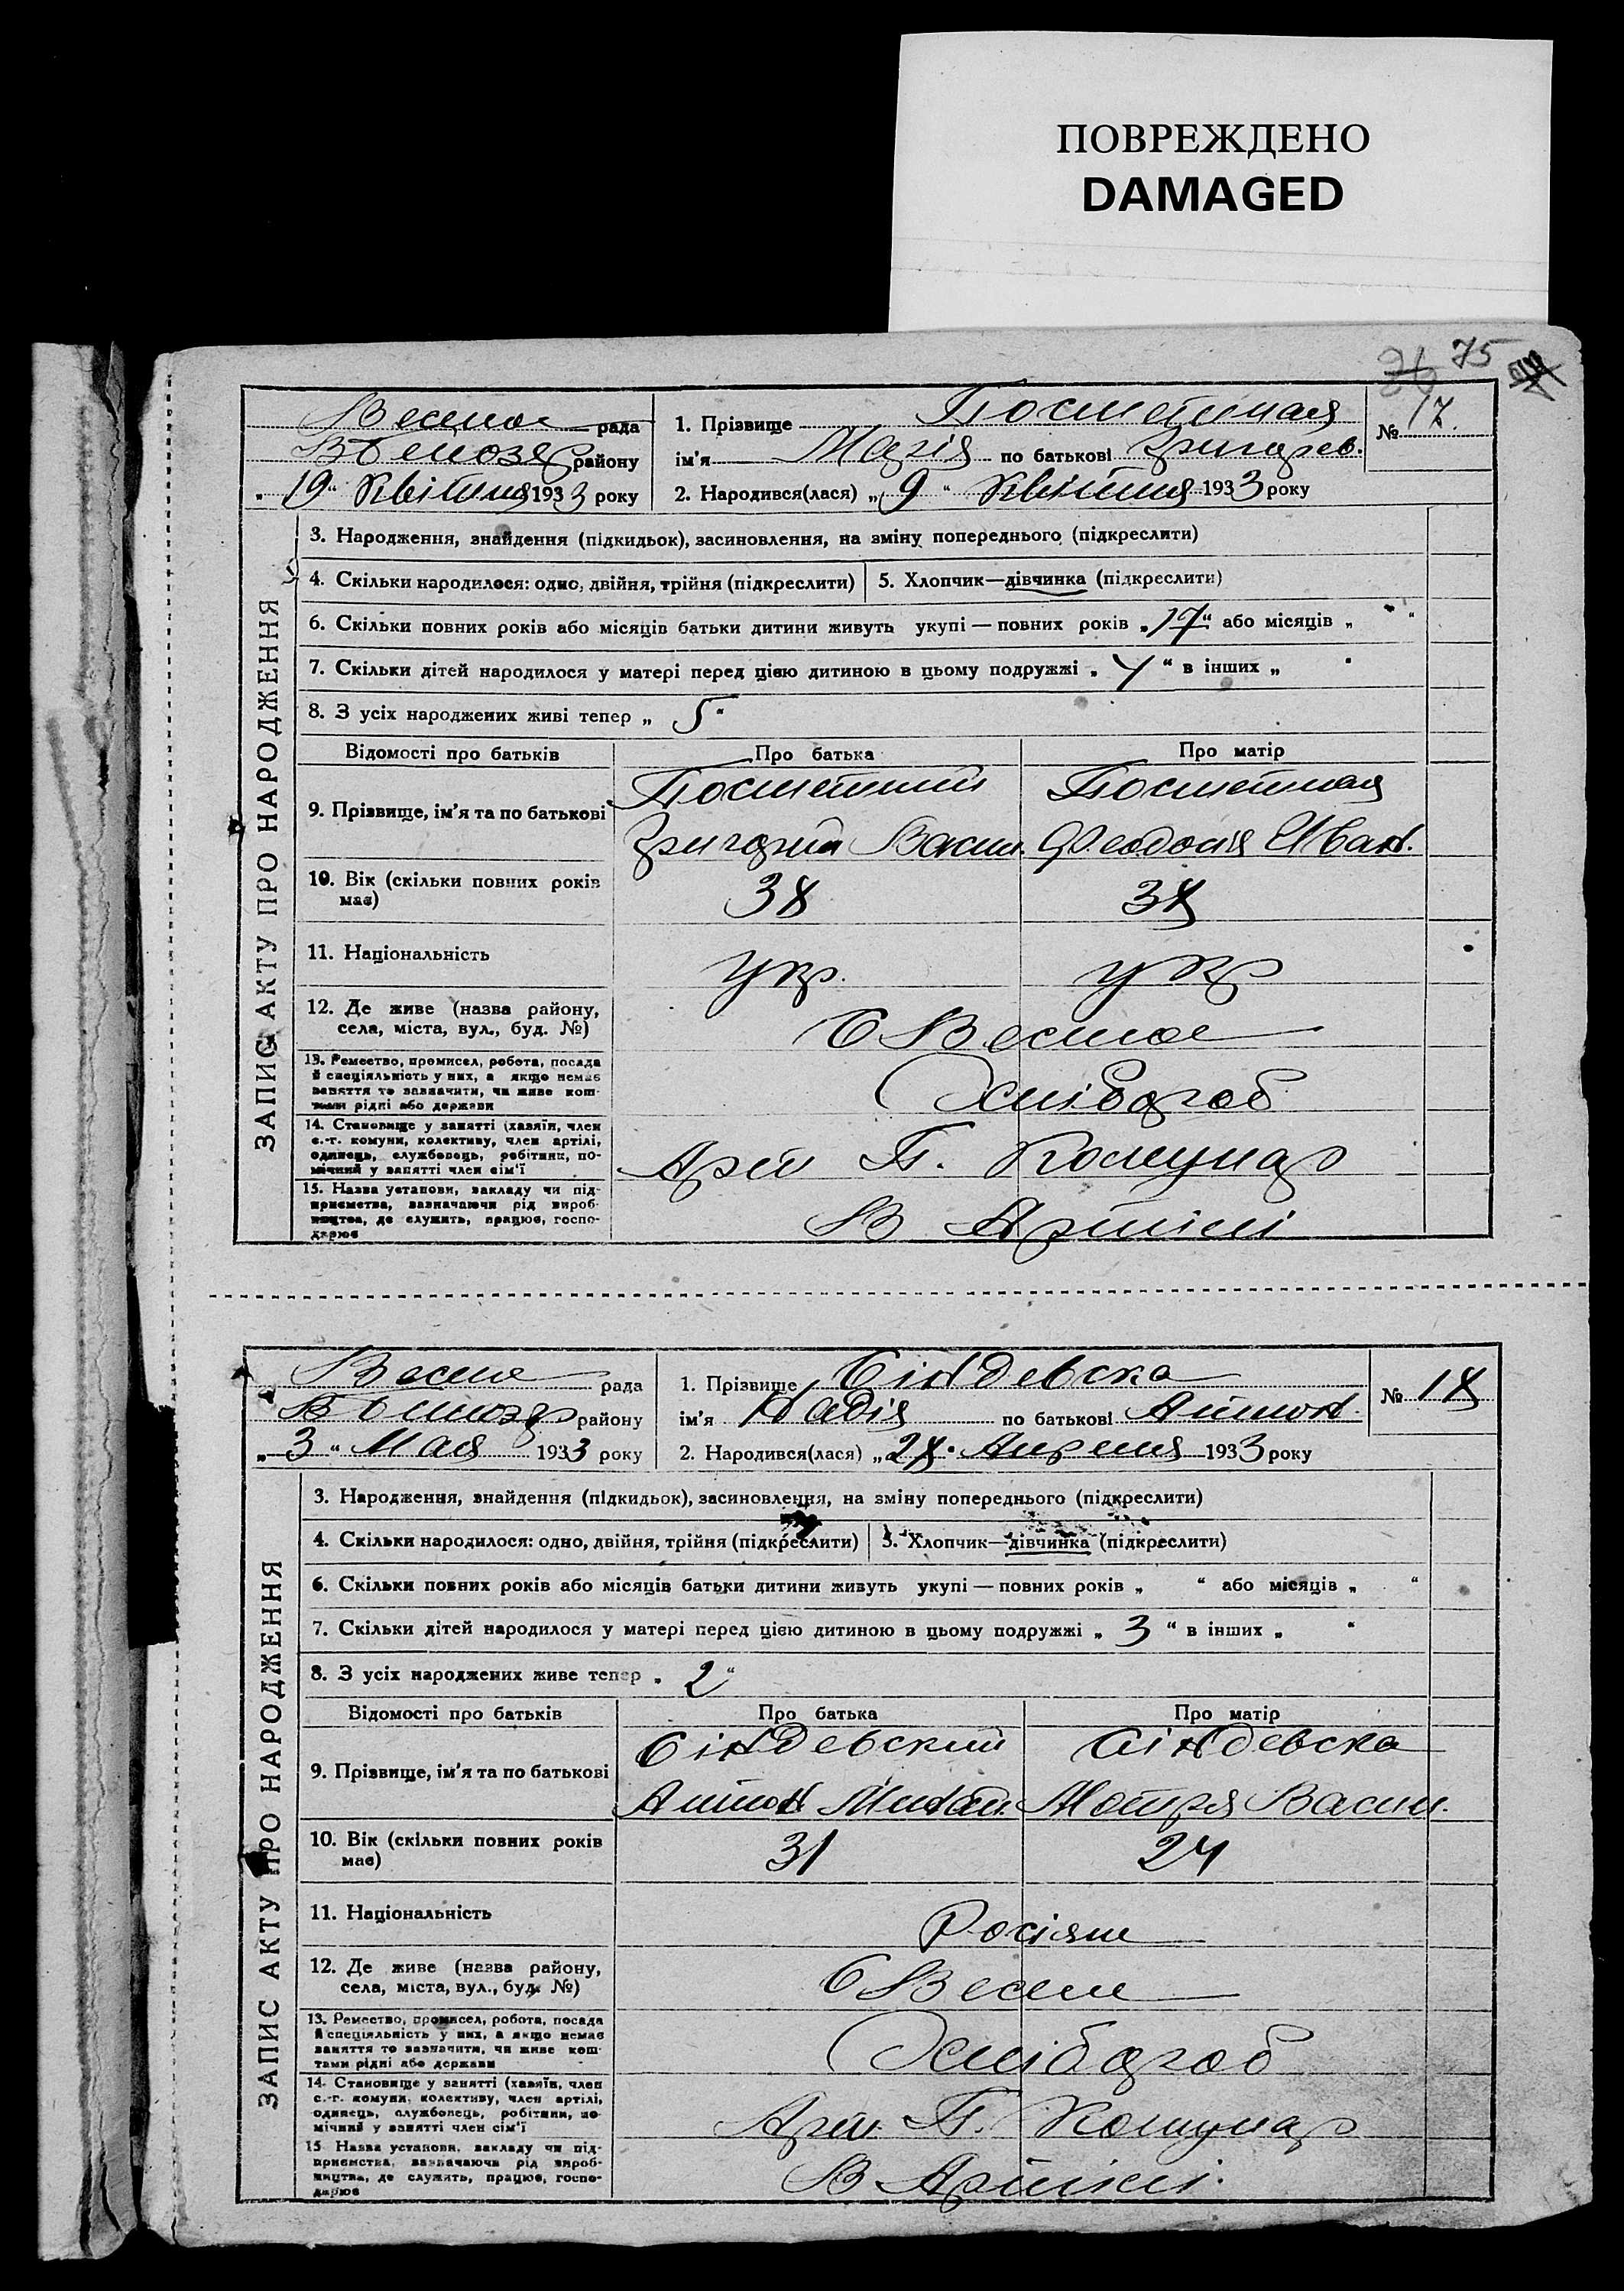 ПОВРЕЖДЕНО
DAMAGED
75
Веселое рада
району
„19“ Квітня 1933 року
1. Прізвище Посметная
№ 17.
ім'я Марія по батькові Григорев.
2. Народився(лася) „9“ Квітня 1933 року
ЗАПИС АКТУ ПРО НАРОДЖЕННЯ
3. Народження, знайдення (підкидьок), засиновлення, на зміну попереднього (підкреслити)
4. Скільки народилося: одно, двійня, трійня (підкреслити)
5. Хлопчик—дівчинка (підкреслити)
6. Скільки повних років або місяців батьки дитини живуть укупі — повних років „17“ або місяців „ “
7. Скільки дітей народилося у матері перед цією дитиною в цьому подружжі „4“ в інших „ “
8. З усіх народжених живі тепер „5“
Відомості про батьків
Про батька
Про матір
9. Прізвище, ім'я та по батькові
Посметний
Посметная
Григорий Васил.
Феодосія Иван.
10. Вік (скільки повних років має)
38
38
11. Національність
Укр.
укр
12. Де живе (назва району, села, міста, вул., буд. №)
С Веселое
13. Ремество, промисел, робота, посада й спеціяльність у них, а якщо немає заняття то зазначити, чи живе коштами рідні або держави
Хлібороб
14. Становище у занятті (хазяїн, член с.-г. комуни, колективу, член артілі, одинець, службовець, робітник, помічний у занятті член сім'ї
Арт П. Комунар
15. Назва установи, закладу чи підприємства, зазначаючи рід виробництва, де служить, працює, господарює
В Артілі
Веселе рада
району
„3“ Мая 1933 року
1. Прізвище Сіндевска
№ 18
ім'я Надія по батькові Антон
2. Народився(лася) „28“ Апреля 1933 року
ЗАПИС АКТУ ПРО НАРОДЖЕННЯ
3. Народження, знайдення (підкидьок), засиновлення, на зміну попереднього (підкреслити)
4. Скільки народилося: одно, двійня, трійня (підкреслити)
5. Хлопчик—дівчинка (підкреслити)
6. Скільки повних років або місяців батьки дитини живуть укупі — повних років „ “ або місяців „ “
7. Скільки дітей народилося у матері перед цією дитиною в цьому подружжі „3“ в інших „ “
8. З усіх народжених живе тепер „2“
Відомості про батьків
Про батька
Про матір
9. Прізвище, ім'я та по батькові
Сіндевский
Сіндевска
Антон Михай.
Мотря Васил.
10. Вік (скільки повних років має)
31
24
11. Національність
Росіяне
12. Де живе (назва району, села, міста, вул., буд. №)
С Веселе
13. Ремество, промисел, робота, посада й спеціяльність у них, а якщо немає заняття то зазначити, чи живе коштами рідні або держави
Хлібороб
14. Становище у занятті (хазяїн, член с.-г. комуни, колективу, член артілі, одинець, службовець, робітник, помічний у занятті член сім'ї
Арт. П. Комунар
15. Назва установи, закладу чи підприємства, зазначаючи рід виробництва, де служить, працює, господарює
В Артілі.